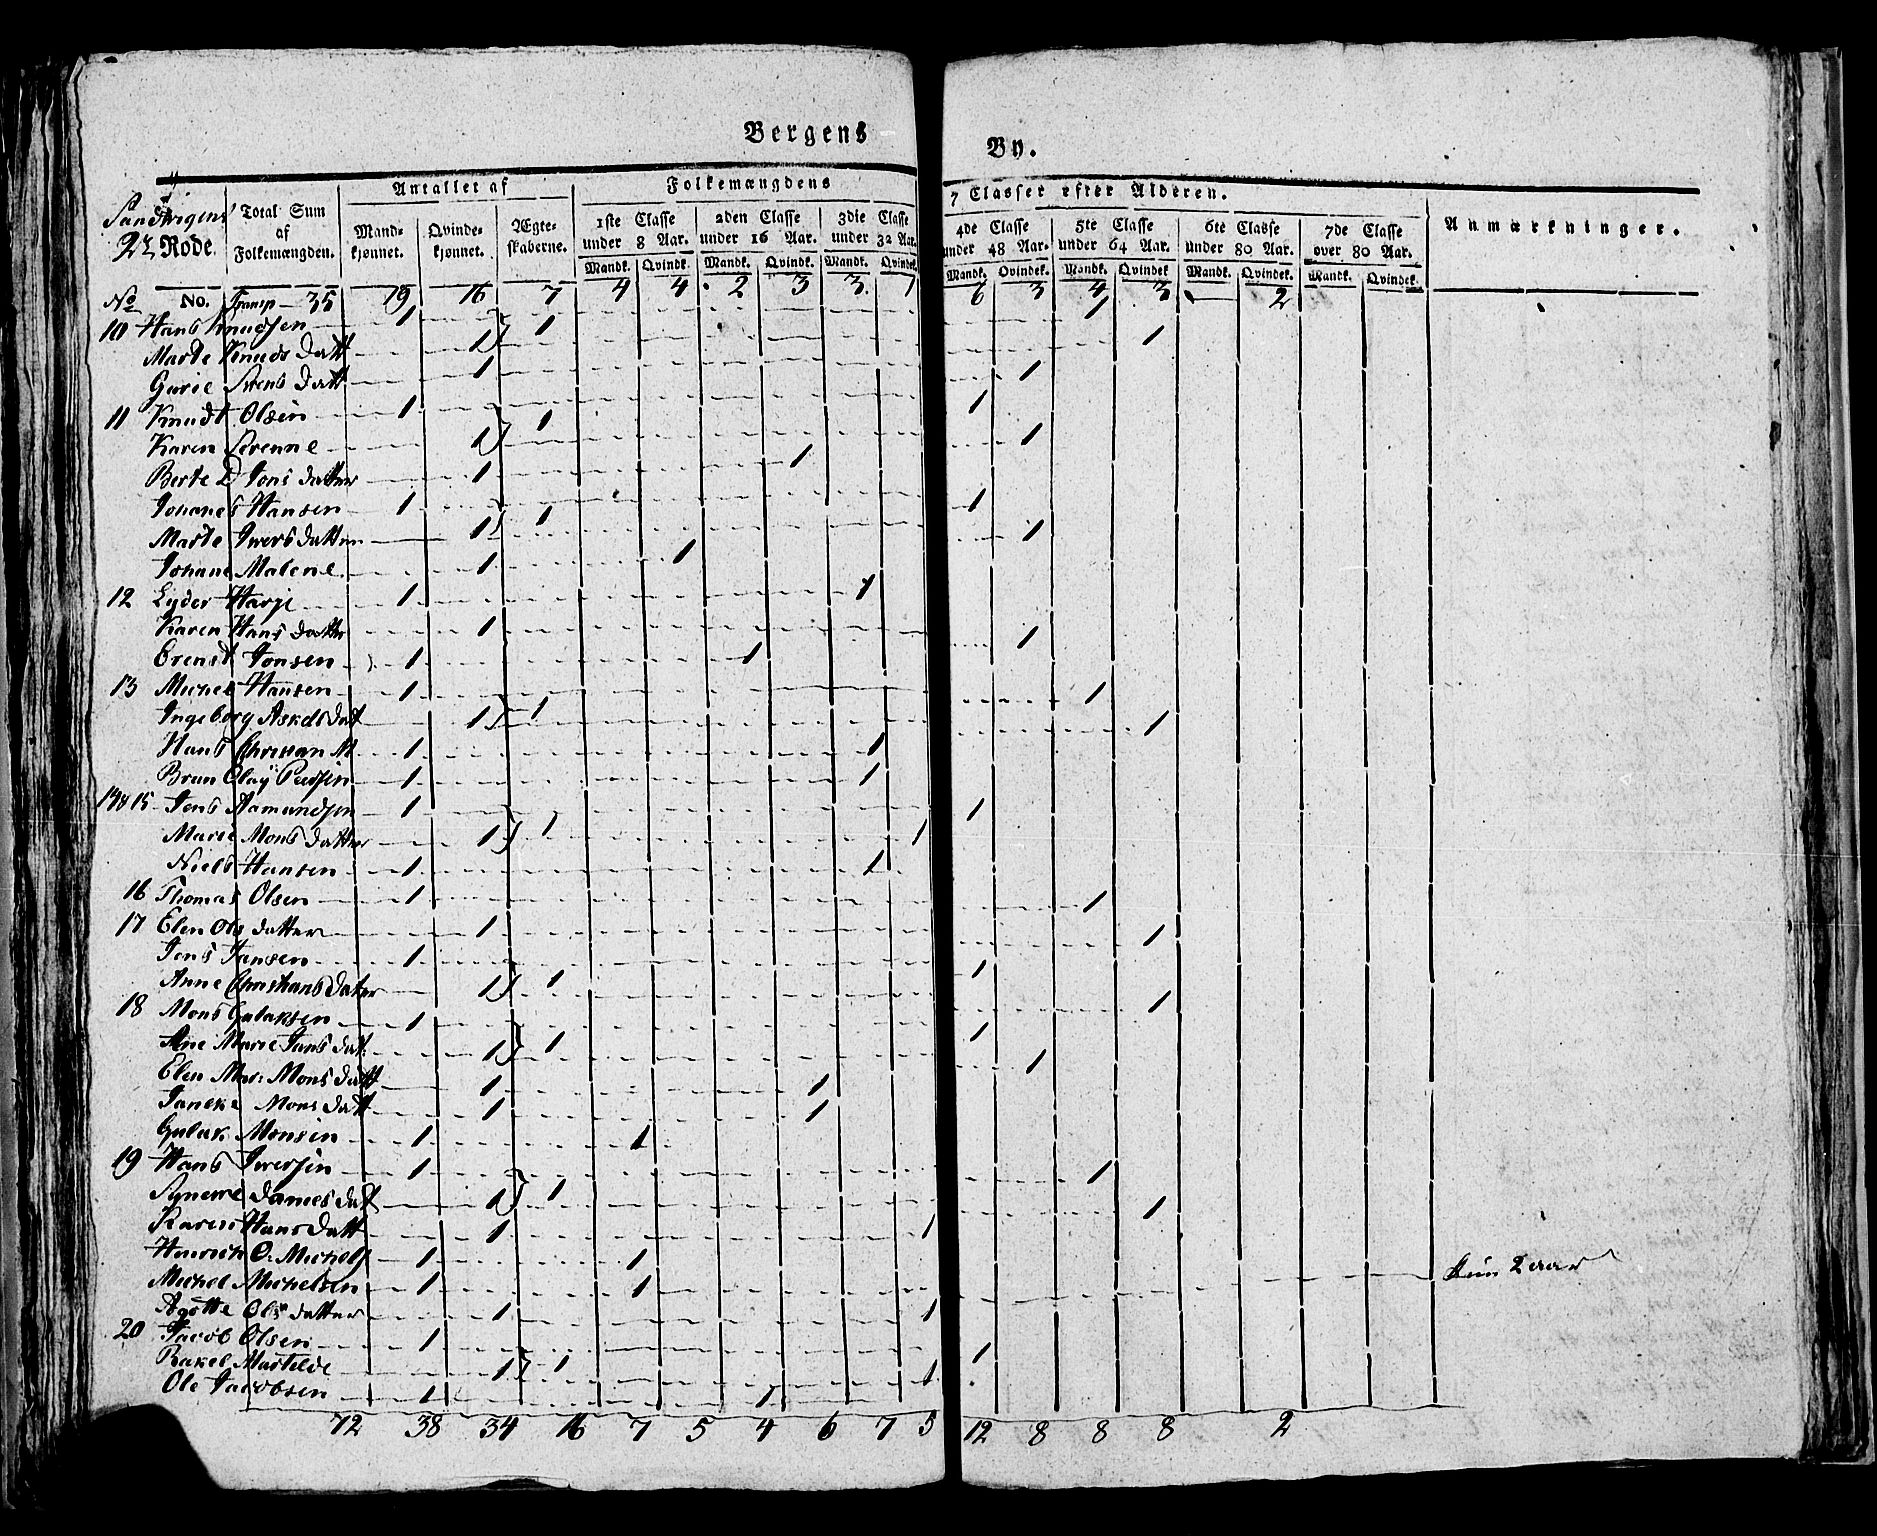 Bergens By.
Sandvigens 2de Rode.
Total Sum af Folkemængden.
Antallet af
Mandkjønnet. Qvindekjønnet. Ægteskaberne.
Folkemængdens 7 Classer efter Alderen.
1ste Classe under 8 Aar. 2den Classe under 16 Aar. 3die Classe under 32 Aar. 4de Classe under 48 Aar. 5te Classe under 64 Aar. 6te Classe under 80 Aar. 7de Classe over 80 Aar.
Anmærkninger.
Mandk. Qvindek. Mandk. Qvindek. Mandk. Qvindek. Mandk. Qvindek. Mandk. Qvindek. Mandk. Qvindek. Mandk. Qvindek.
No No. Transp 35 19 16 7 4 4 2 3 3 1 6 3 4 3 — 2
10 Hans Knudsen 1 1 1
Marte Knuds Datt 1 1
Gurie Sirens Datt 1 1
11 Knudt Olsen 1 1 1
Karen Serenne 1 1
Berte D Jons datter 1 1
Johanes Hansen 1 1 1
Marte Iwers datter 1 1
Johane Malene 1 1
12 Lyder Harje 1 1
Karen Hans datter 1 1
Erenst Jonsen 1 1
13 Michel Hansen 1 1
Ingeborg Askels dat 1 1 1
Hans Christian M 1 1
Brun Olay Peersen 1 1
14 & 15 Jens Aamundsen 1 1
Marie Mons datter 1 1 1
Niels Hansen 1 1
16 Thomas Olsen 1 1
17 Elen Ols datter 1 1
Jens Jansen 1 1
Anne Christians dater 1 1 1
18 Mons Gulaksen 1 1
Ane Marie Jans dat: 1 1 1
Elen Mar: Mons datt 1 1
Janeke Mons datt 1 1
Gulak Monsen 1 1
19 Hans Iversen 1 1
Synewe Daniels dat 1 1 1
Karen Hans Datt 1 1
Hinrich O: Michels 1 1
Michel Michelsen 1 1 kun 2 aar
Agotte Ols datter 1 1
20 Jacob Olsen 1 1
Rakel Martelde 1 1 1
Ole Jacobsen 1 1
72 38 34 16 7 5 4 6 7 5 12 8 8 8 2